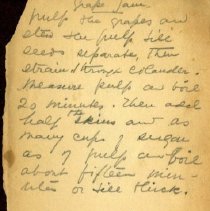 Grape Jam.
Pulp the grapes and
stew the pulp till
seeds separate, then
strain through colander.
Measure pulp and boil
20 minutes. Then add
half the skins and as
many cups of sugar
as of pulp and boil
about fifteen min-
utes or till thick.